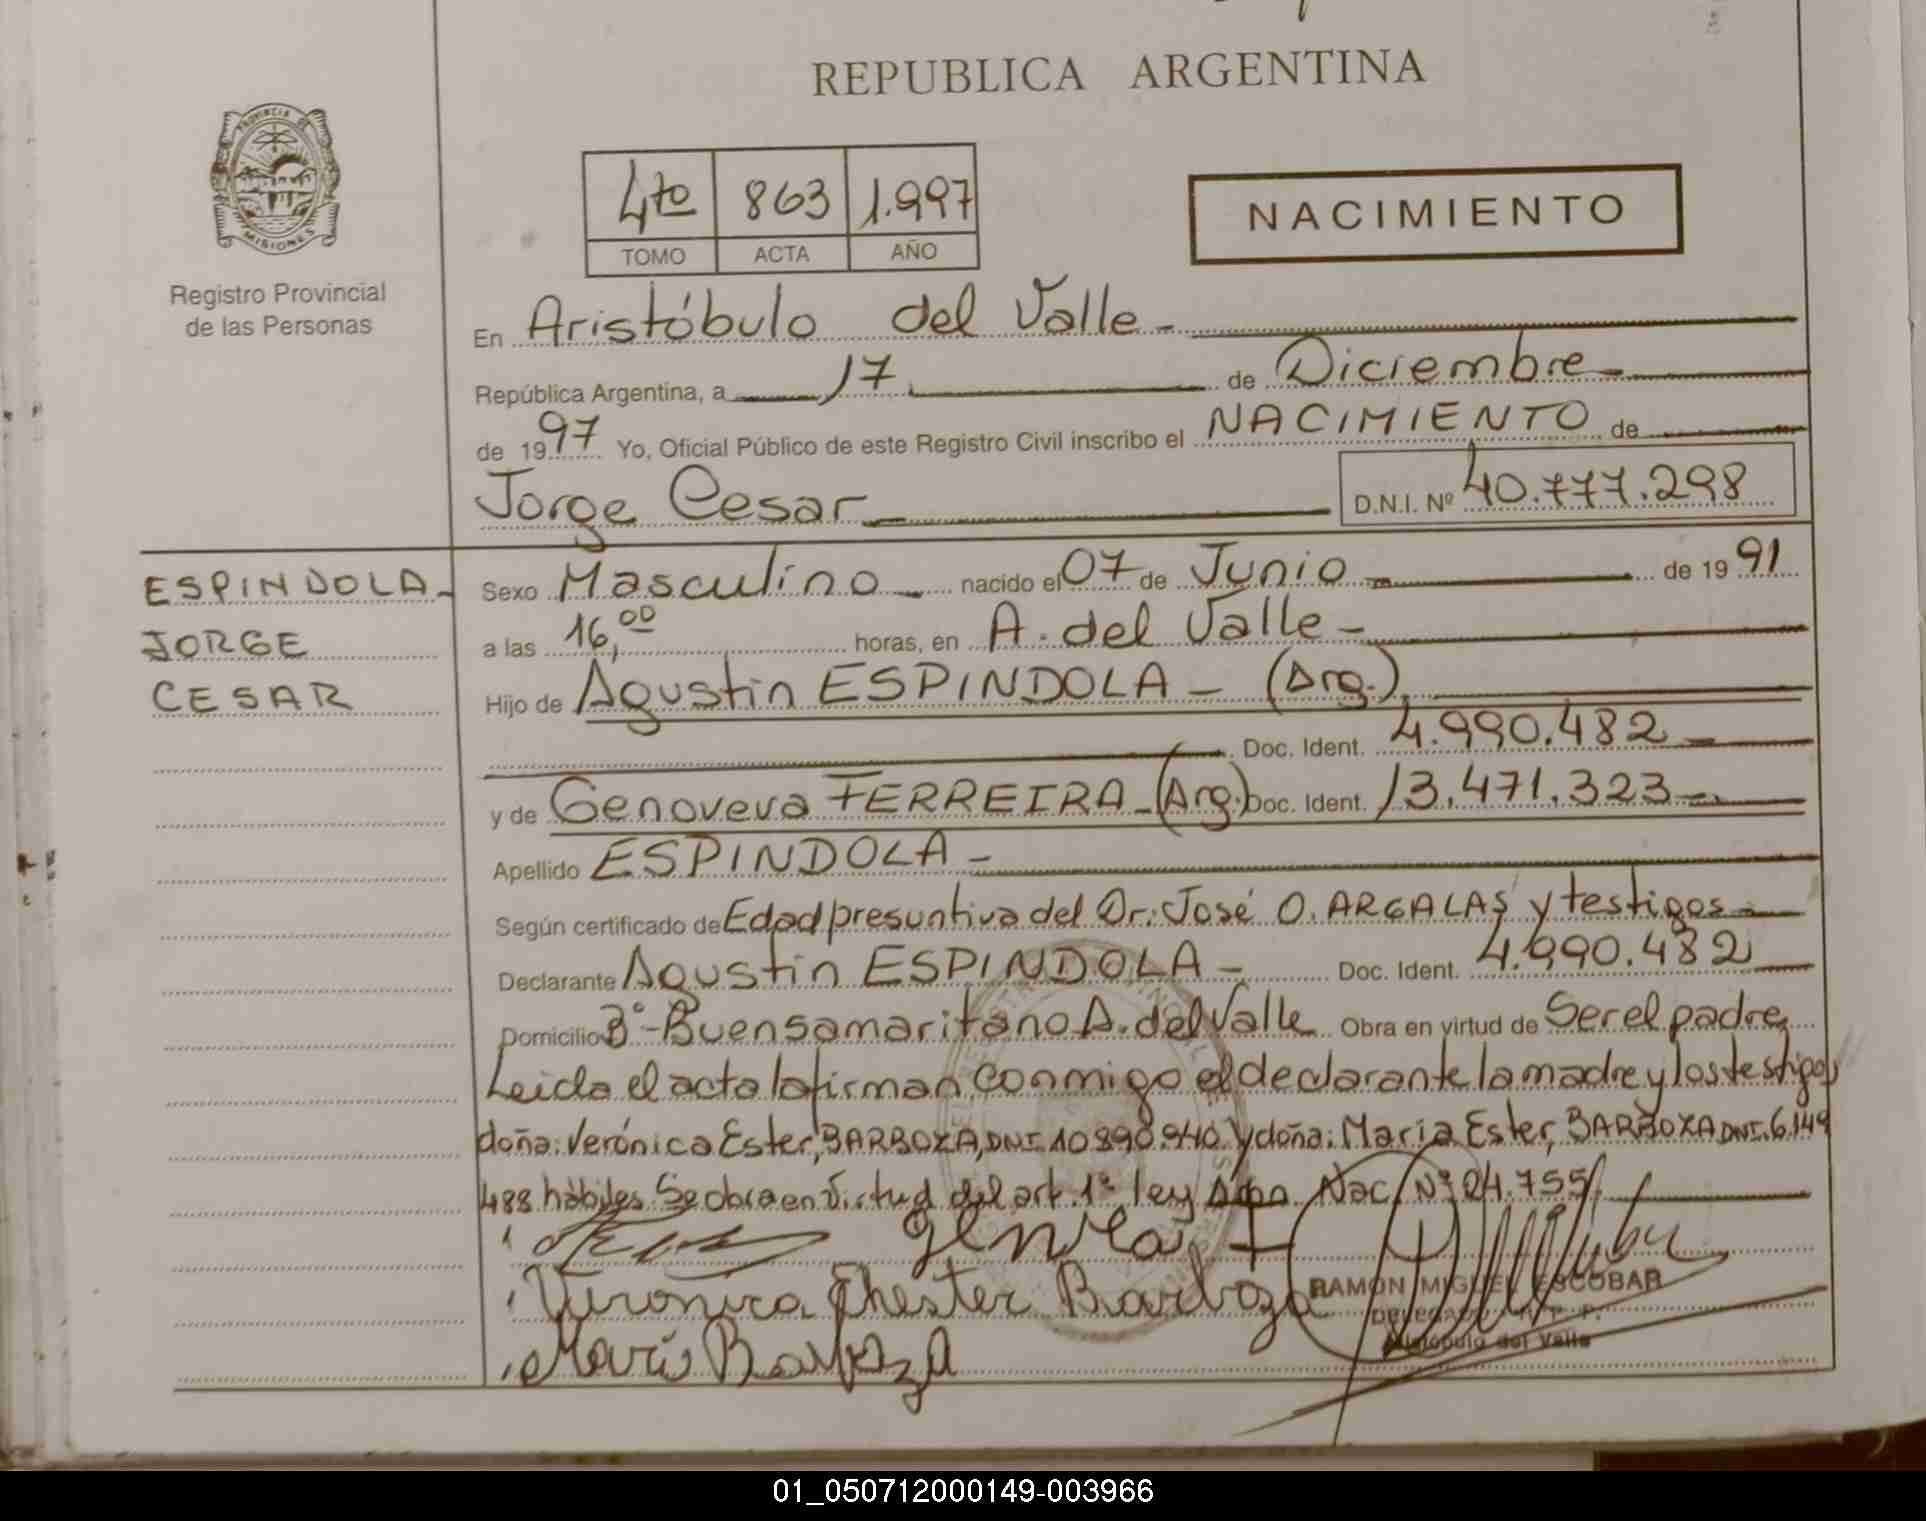 REPUBLICA ARGENTINA
PROVINCIA DE
MISIONES
Registro Provincial
de las Personas
4to 863 1.997
TOMO ACTA AÑO
NACIMIENTO
En Aristóbulo del Valle
República Argentina, a 17 de Diciembre
de 1997 Yo, Oficial Público de este Registro Civil inscribo el NACIMIENTO de
Jorge Cesar D.N.I. Nº 40.777.298
ESPINDOLA
JORGE
CESAR
Sexo Masculino nacido el 07 de Junio de 1991
a las 16,00 horas, en A. del Valle
Hijo de Agustin ESPINDOLA - (Arg.)
Doc. Ident. 4.990.482
y de Genoveva FERREIRA - (Arg.) Doc. Ident. 13.471.323
Apellido ESPINDOLA
Según certificado de Edad presuntiva del Dr: José O. ARGALAS y testigos
Declarante Agustin ESPINDOLA Doc. Ident. 4.990.482
Domicilio Bº-Buensamaritano A. del Valle Obra en virtud de Ser el padre
Leida el acta la firman conmigo el declarante la madre y los testigos
doña: Verónica Ester, BARBOZA, DNI. 10890.940 y doña: Maria Ester, BARBOZA DNI. 6.149
488 hábiles. Se obra en virtud del art. 1º ley Nac. Nº 24.755
Veronica Ehester Barboza
RAMON MIGUEL ESCOBAR
DELEGADO R. P. P.
Aristóbulo del Valle
Maria Barboza
01_050712000149-003966